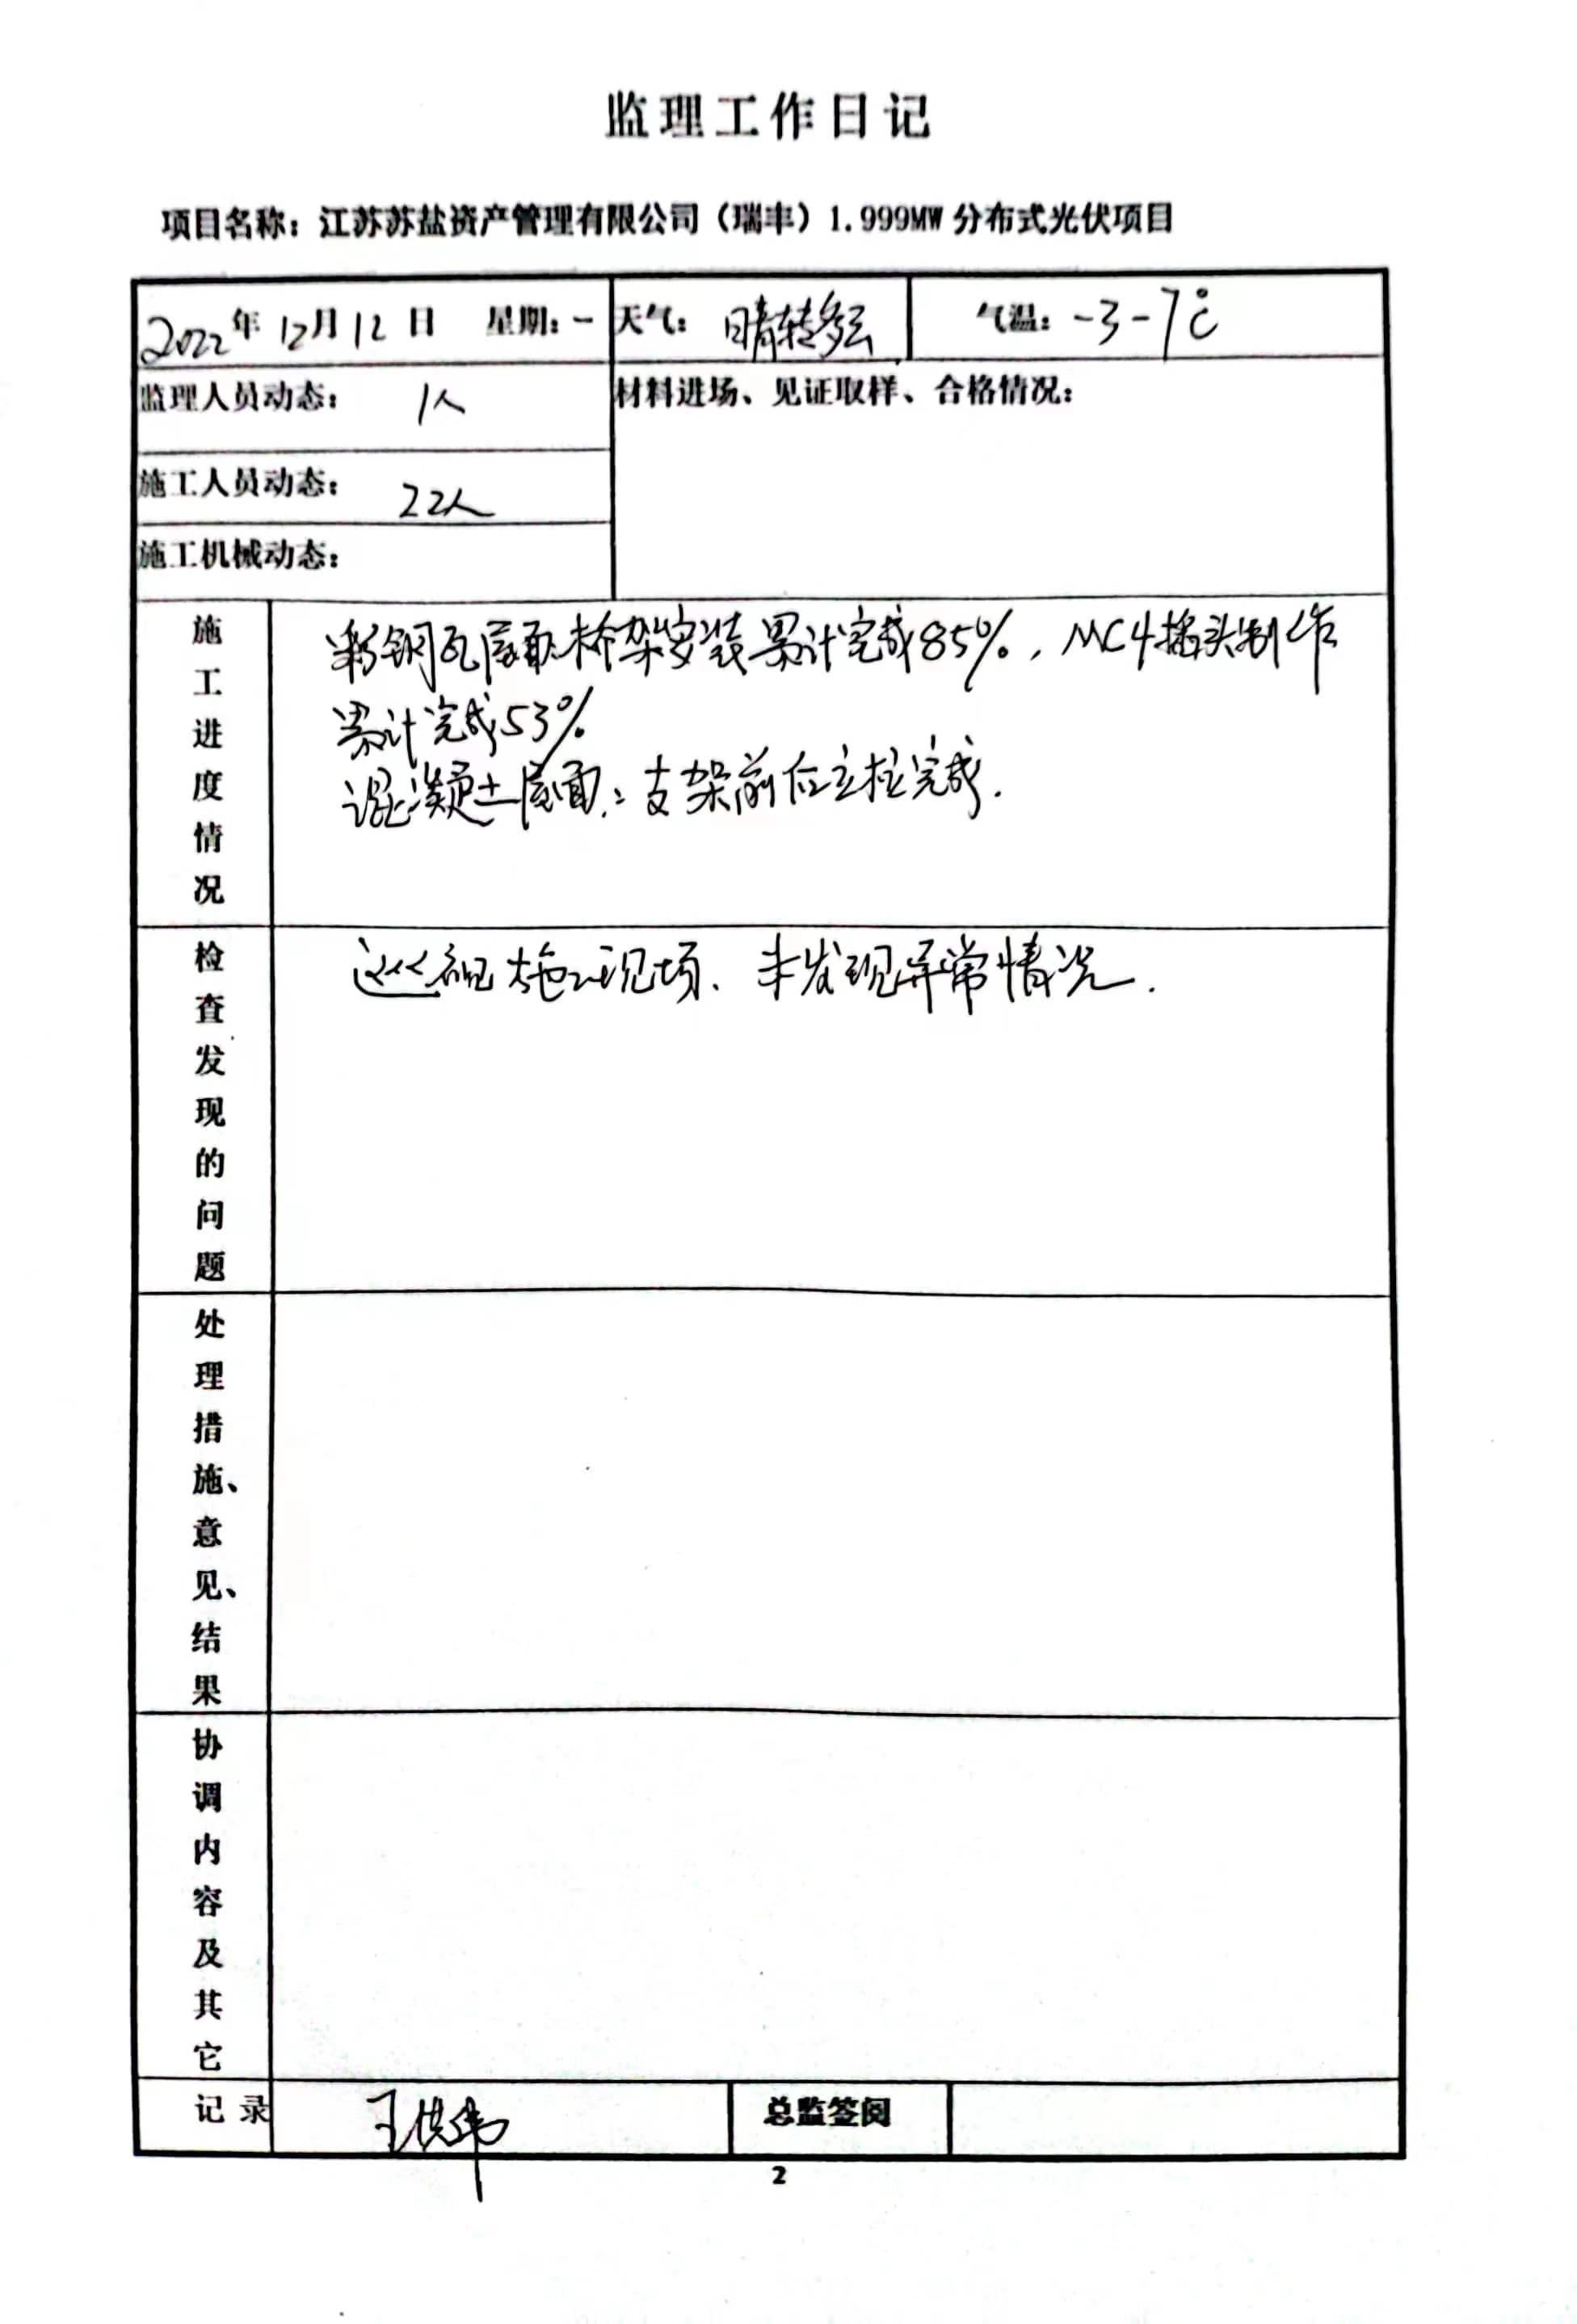 监理工作日记
项目名称：江苏苏盐资产管理有限公司（瑞丰）1.999MW分布式光伏项目
2022年12月12日 星期：一 天气：晴转多云 气温：-3-7℃
监理人员动态：1人 材料进场、见证取样、合格情况：
施工人员动态：22人
施工机械动态：
施工进度情况
彩钢瓦屋面：桥架安装累计完成85%，MC4插头制作
累计完成53%
混凝土屋面：支架前后立柱完成.
检查发现的问题
巡视施工现场、未发现异常情况.
处理措施、意见、结果
协调内容及其它
记录 王 总监签阅
2